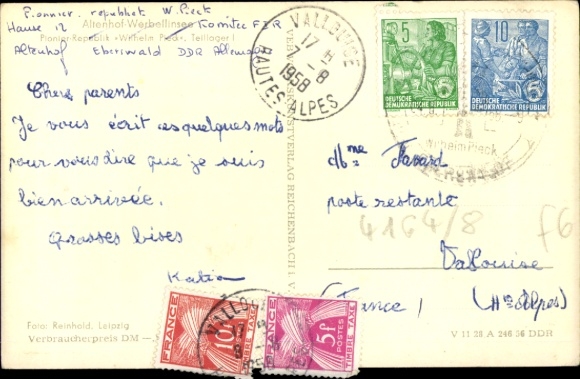 Pionnier. republikk W. Pieck
Hause 12
Altenhof-Werbellinsee
Komitee FDR
Pionier-Republik »Wilhelm Pieck«, Teillager I
Altenhof Eberiwald DDR Allemagne
Chers parents
Je vous écrit ces quelques mots
pour vous dire que je suis
bien arrivée.
Grosses bises
Katia
Foto: Reinhold, Leipzig
Verbraucherpreis DM
VALLOUISE
17 H
7 - 8
1958
HAUTES-ALPES
5
DEUTSCHE
DEMOKRATISCHE REPUBLIK
10
DEUTSCHE
DEMOKRATISCHE REPUBLIK
Wilhelm Pieck
Mme Favard
poste restante
4164/8
f6
Vallouise
(Htes Alpes)
(France)
FRANCE
10F
TIMBRE TAXE
FRANCE
5F
POSTES
TIMBRE TAXE
V 11 28 A 246 56 DDR